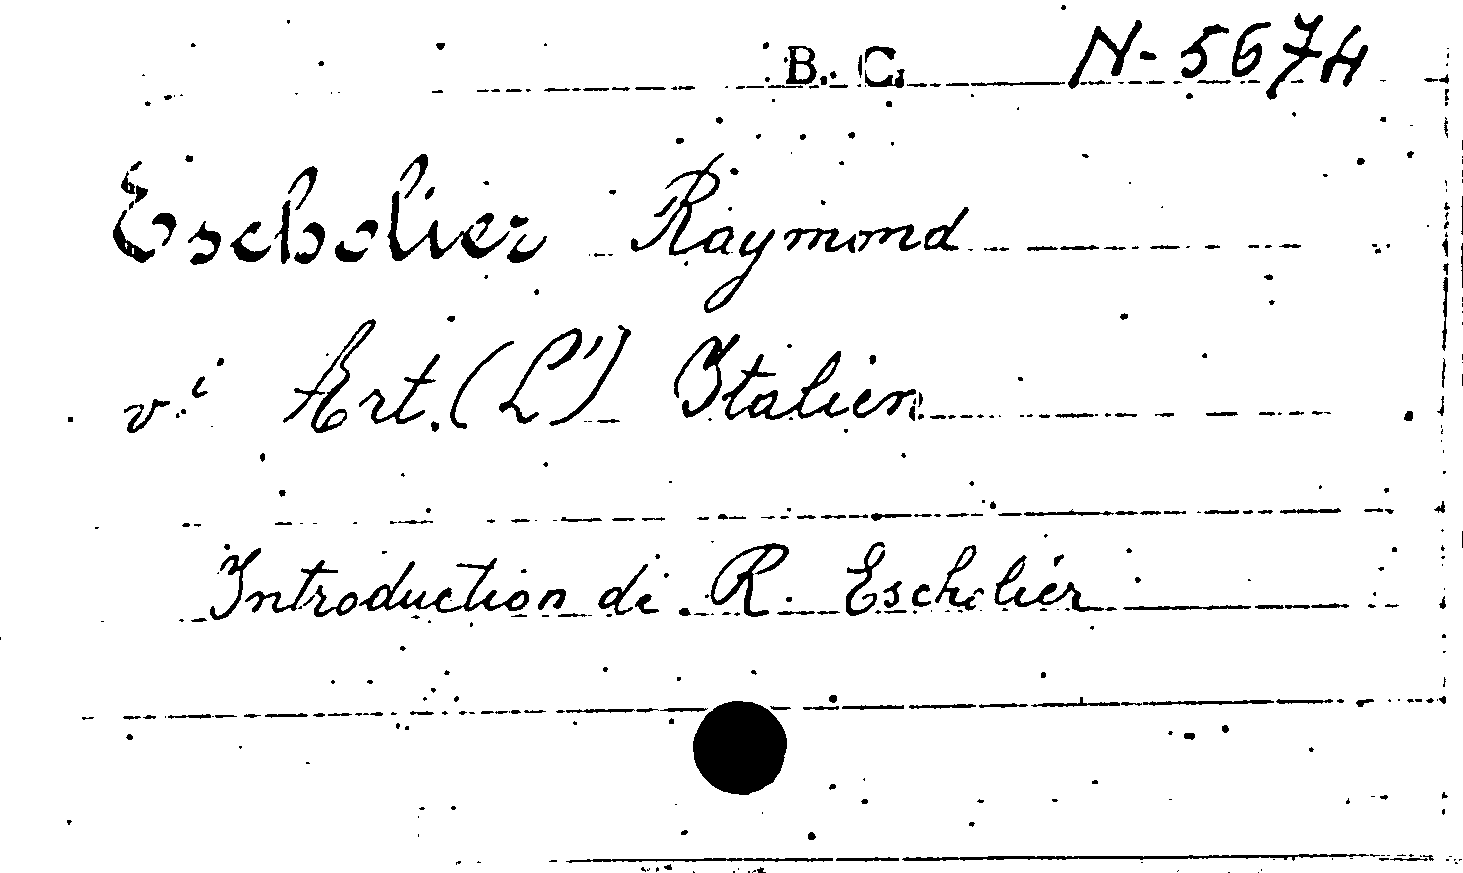 B. C. N-5674
Escholier Raymond
vi Art. (L') Italien
Introduction de R. Escholier